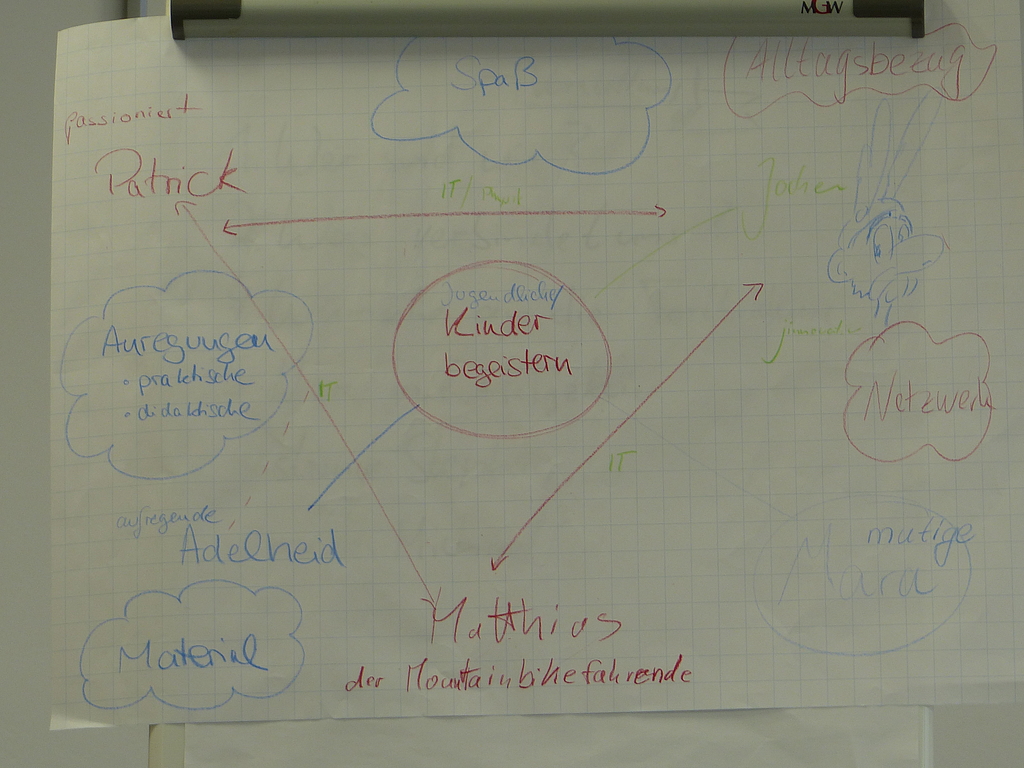 MGW
Spaß
Alltagsbezug
passioniert
Patrick
IT/
Jochen
Jugendliche/
Kinder
begeistern
Anregungen
• praktische
• didaktische
IT
Netzwerk
IT
aufregende
Adelheid
mutige
Mara
Material
Matthias
der Mountainbikefahrende